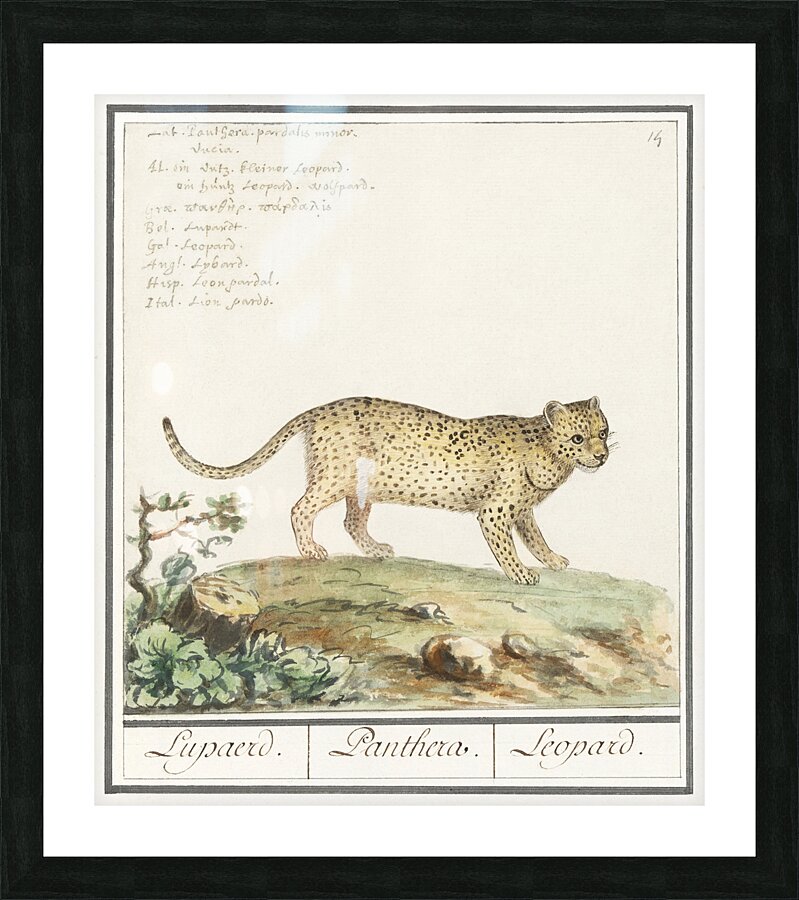 Lat. Panthera. pardalis minor.
14
Al. ein kleiner Leopard.
ein Leopard.
Græ. πανθὴρ. πάρδαλις
Bel. Lupardt.
Gal. Leopard.
Angl. Lybard.
Hisp. Leon pardal.
Ital. Lion pardo.
Lupaerd. Panthera. Leopard.